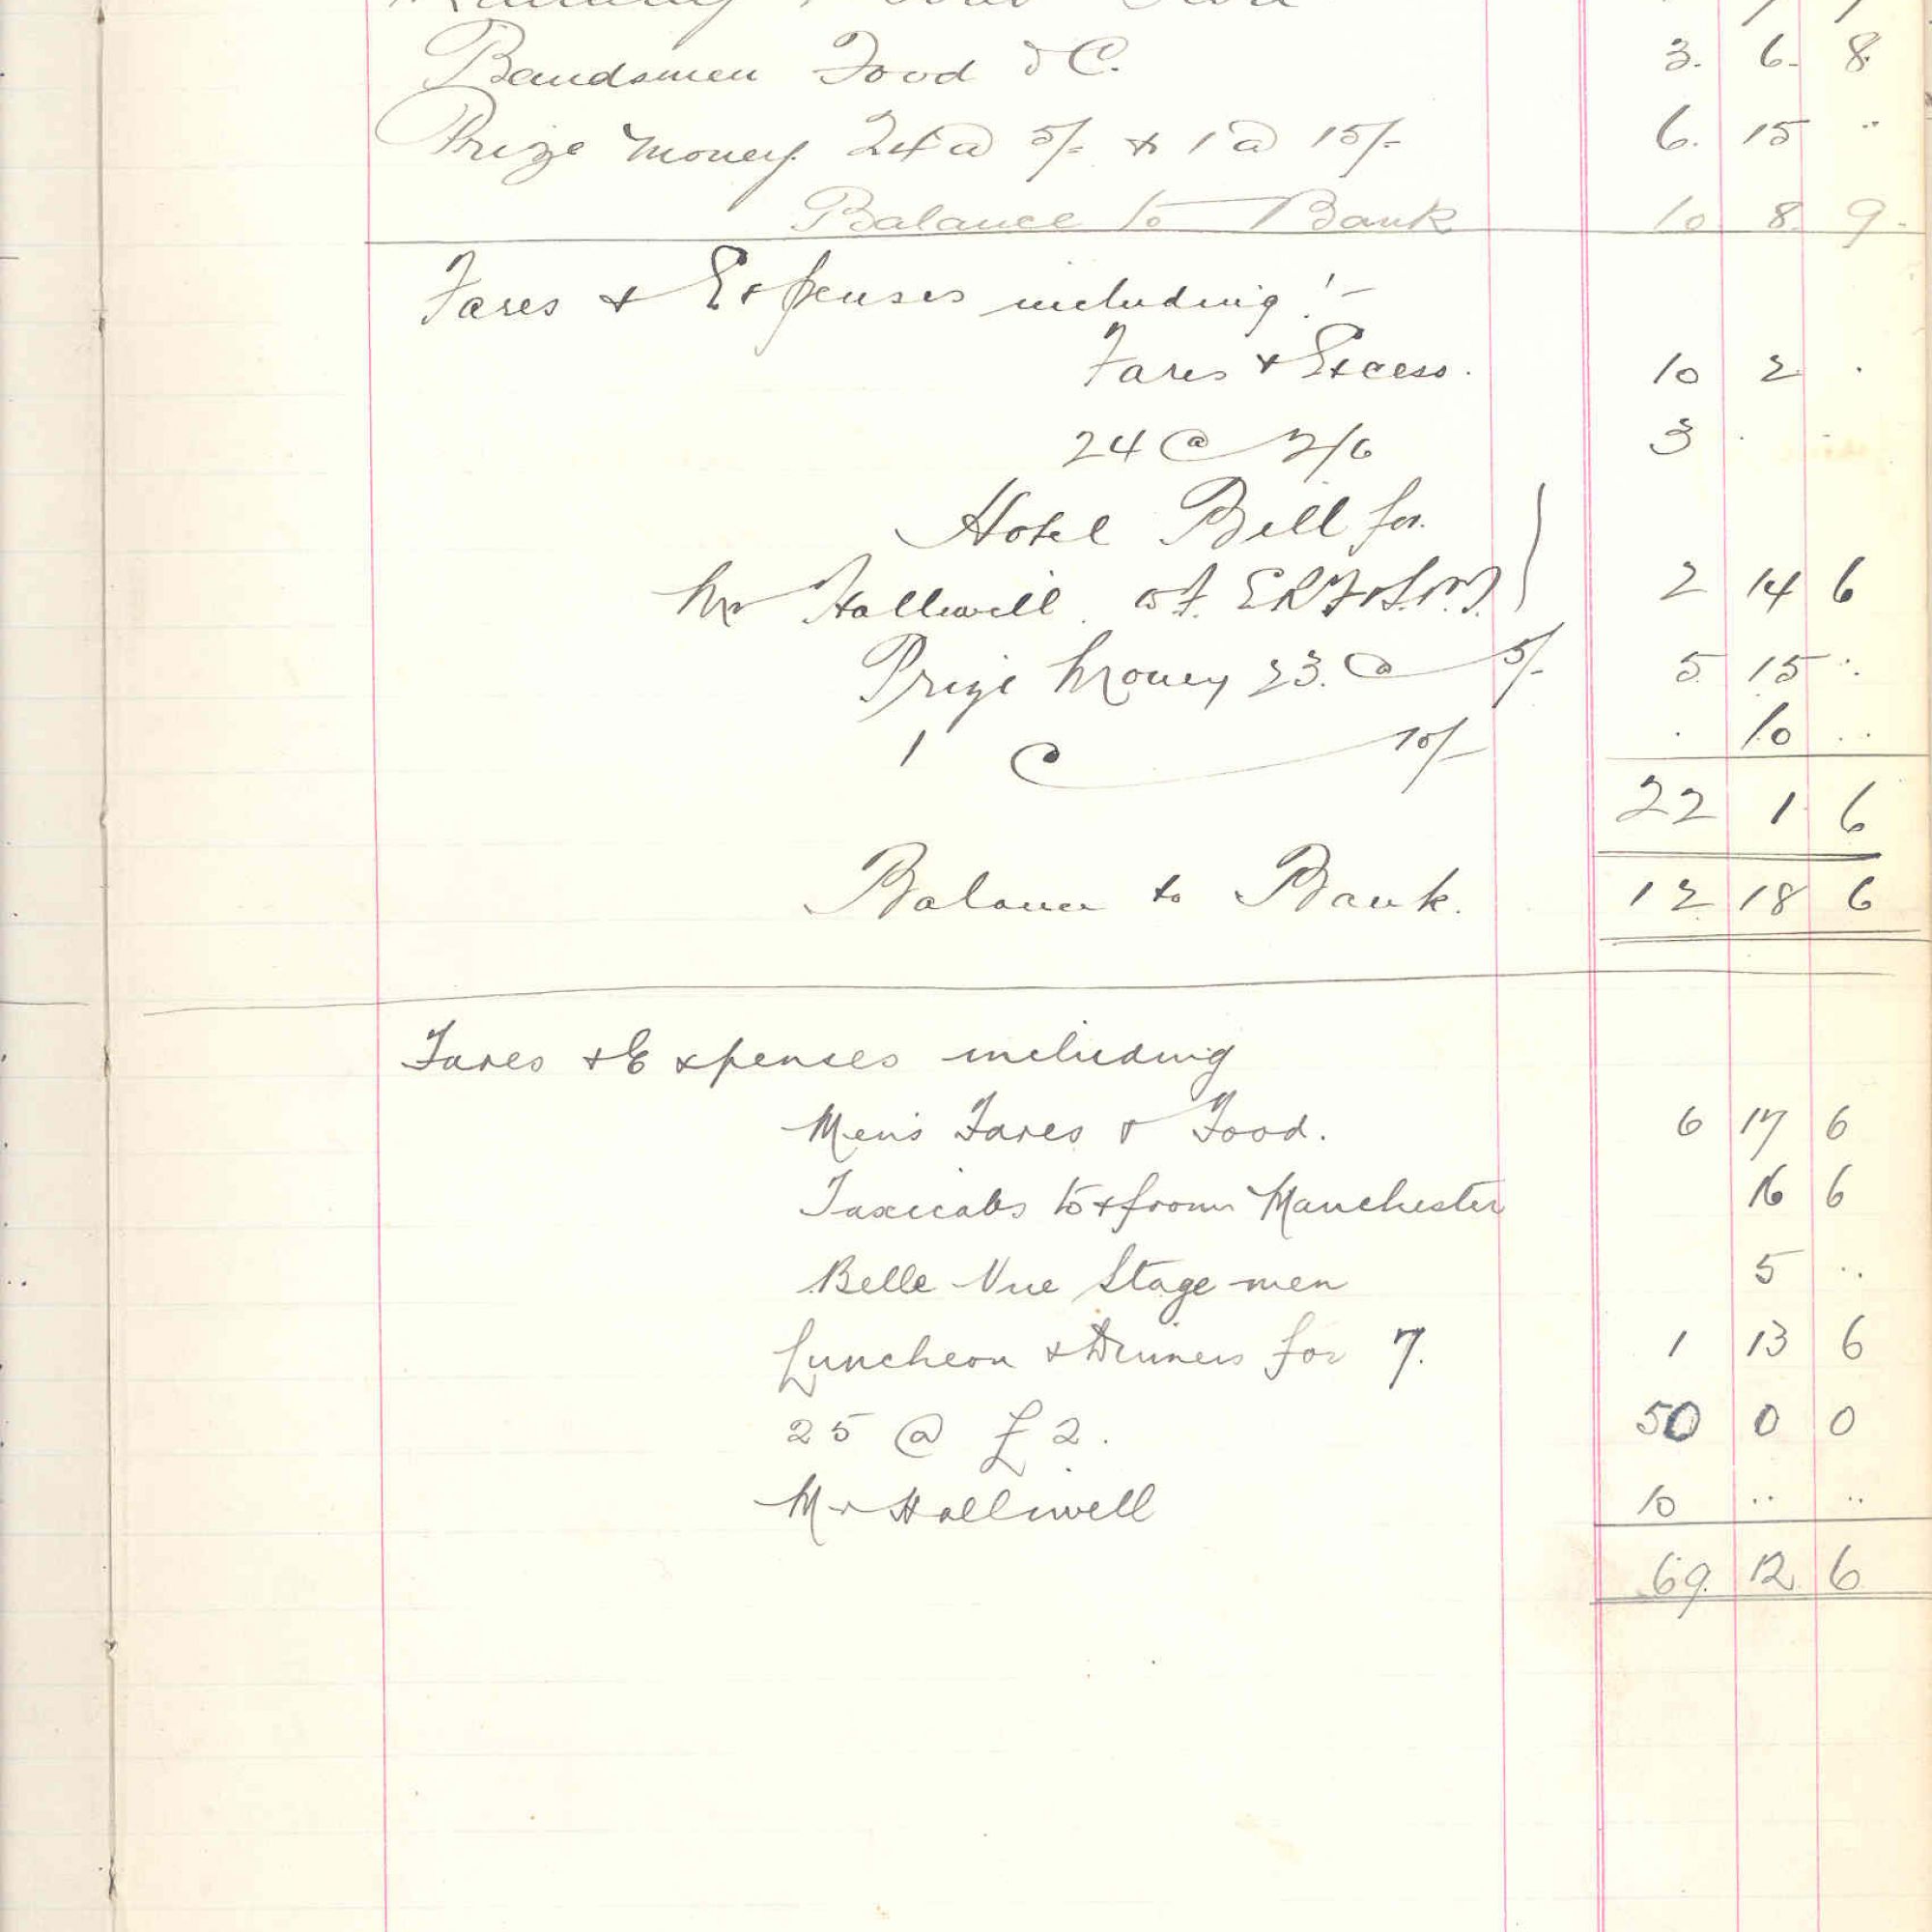 Bandsmen Food & C. 3. 6. 8.
Prize Money 24 @ 5/- & 1 @ 15/- 6. 15 ..
Balance to Bank 10 8. 9.
Fares & Expenses including :-
Fares & Excess. 10 2 .
24 @ 2/6 3 .
Hotel Bill for
Mr Halliwell 2 14 6
Prize Money 23. @ 5/- 5 15 ..
1 @ 10/- . 10 ..
22 1 6
Balance to Bank. 12 18 6
Fares & Expenses including
Mens Fares & Food. 6 17 6
Taxicabs to & from Manchester 16 6
Belle Vue Stage men 5 ..
Luncheon & Dinners for 7. 1 13 6
25 @ £2. 50 0 0
Mr Halliwell 10 .. ..
69. 12 6